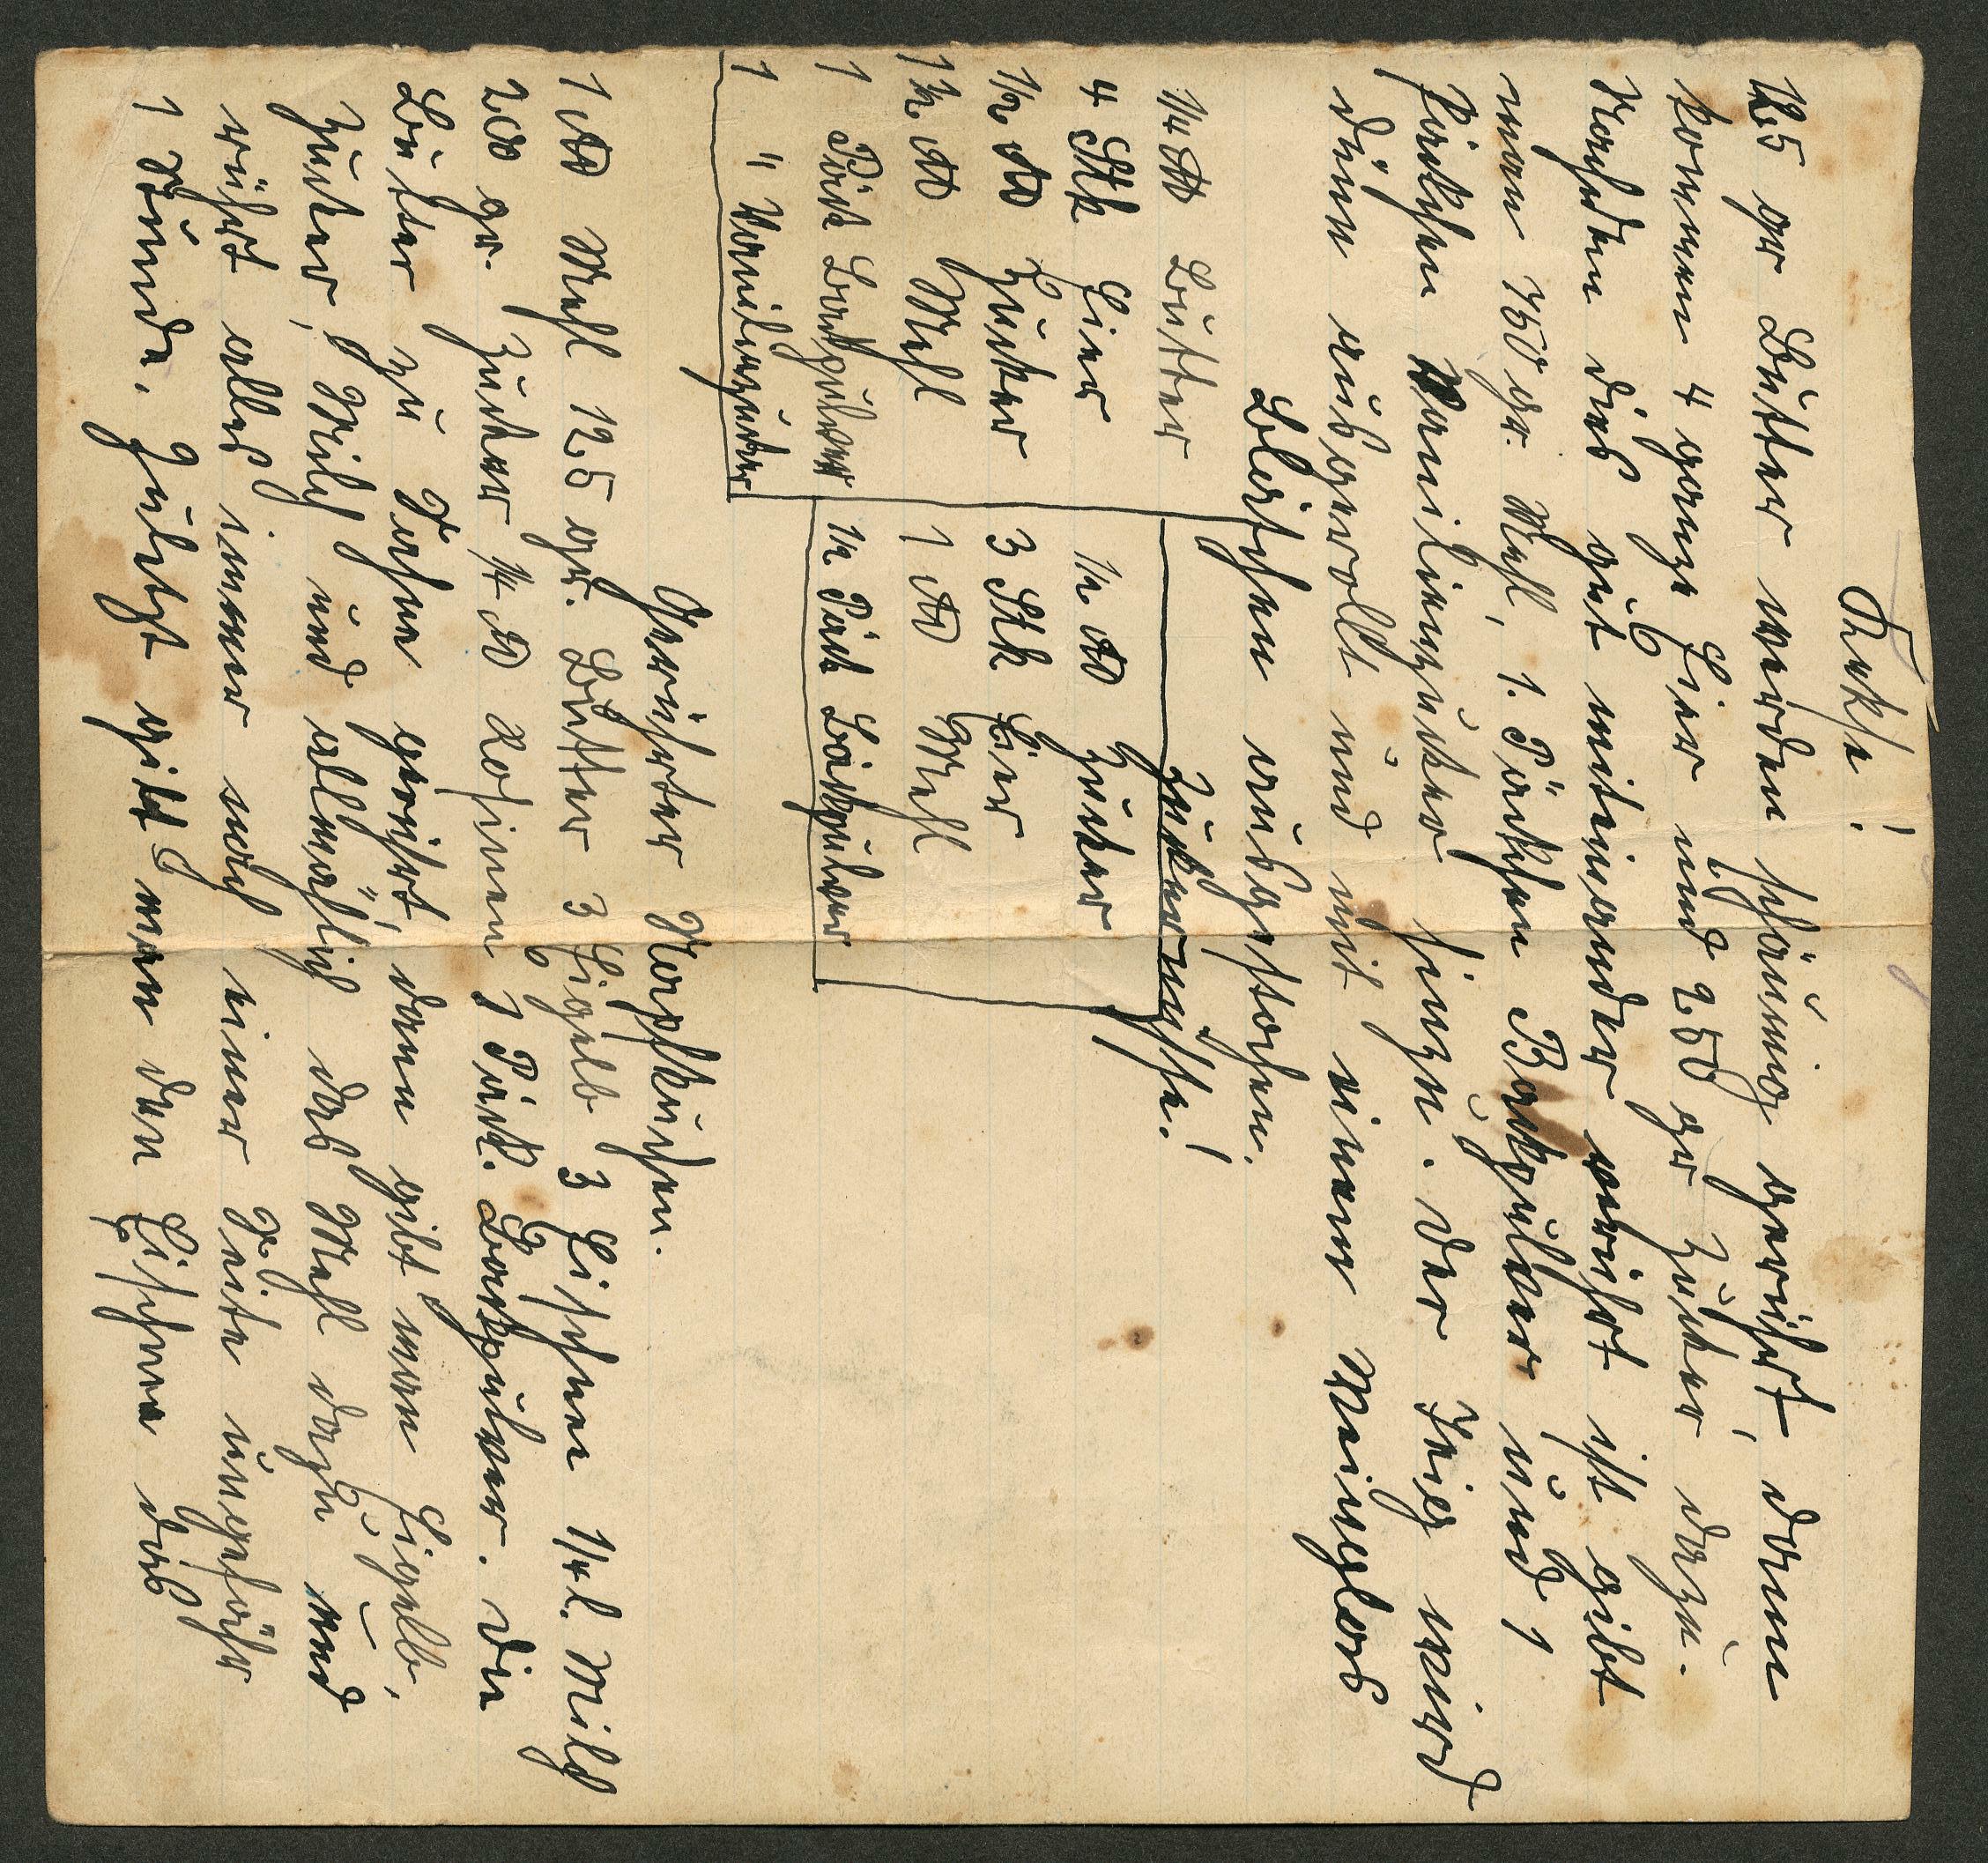 Kekse!
125 gr Butter werden schäumig gerührt, dann
kommen 4 ganze Eier und 250 gr Zucker dazu.
Nachdem dies gut miteinander verührt ist gibt
man 750 gr. Mehl, 1. Päckchen Backpulver und 1
Päckchen Vanilinzucker hinzu. Der Teig wird
dünn ausgerollt und mit einem Weinglas
Blättchen ausgestochen.
1/4 ℔ Butter
4 Stk Eier
1/2 ℔ Zucker
1 1/2 ℔ Mehl
1 Päck Backpulver
1 " Vanilinzucker
Zuckernüsse!
1/2 ℔ Zucker
3 Stk Eier
1 ℔ Mehl
1/2 Päck Backpulver
Gerührter Napfkuchen.
1 ℔ Mehl 125 gr. Butter 3 Eigelb 3 Eischnee 1/4 l. Milch
200 gr. Zucker 1/4 ℔ Rosinen 1 Päck. Backpulver. Die
Butter zu Sahne gerührt, dann gibt man Eigelb,
Zucker, Milch und allmählich das Mehl dazu und
rührt alles immer nach einer Seite ungefähr
1 Stunde. Zuletzt gibt man den Eischnee das